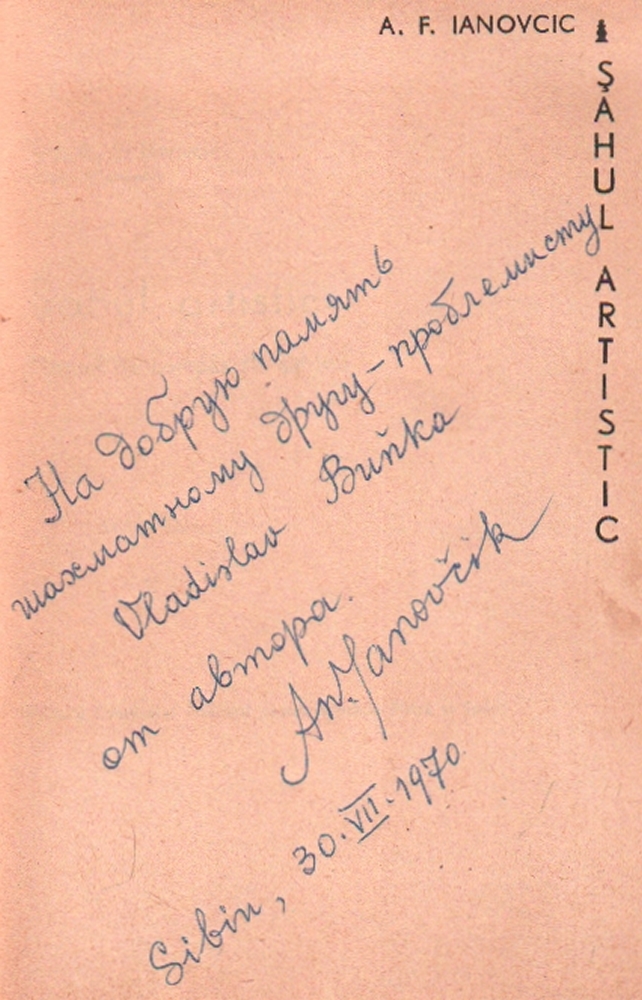 A. F. IANOVCIC
ȘAHUL ARTISTIC
На добрую память
шахматному другу-проблемисту
Vladislav Buňka
от автора.
An. Janovčik
Sibin, 30.VII.1970